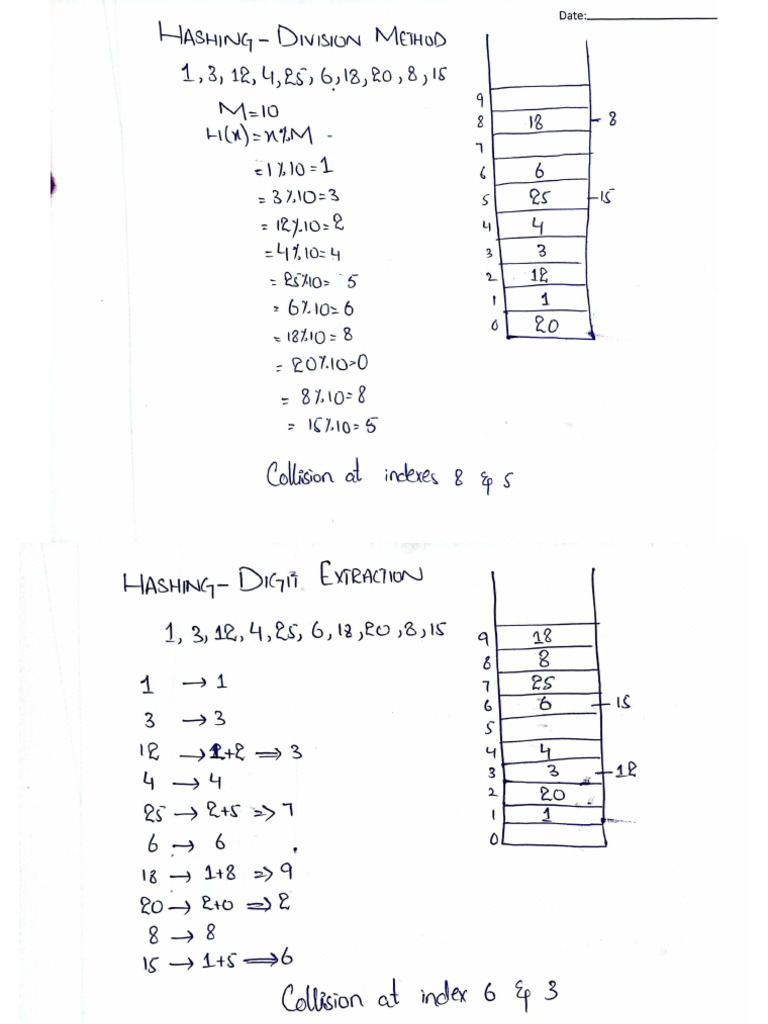 Date:
HASHING - DIVISION METHOD
1, 3, 12, 4, 25, 6, 18, 20, 8, 15
M=10
H(x) = x%M
= 1%10 = 1
= 3%10 = 3
= 12%10 = 2
= 4%10 = 4
= 25%10 = 5
= 6%10 = 6
= 18%10 = 8
= 20%10 = 0
= 8%10 = 8
= 15%10 = 5
9
8 18 8
7
6 6
5 25 15
4 4
3 3
2 12
1 1
0 20
Collision at indexes 8 & 5
HASHING - DIGIT EXTRACTION
1, 3, 12, 4, 25, 6, 18, 20, 8, 15
1 → 1
3 → 3
12 → 1+2 ⇒ 3
4 → 4
25 → 2+5 ⇒ 7
6 → 6
18 → 1+8 ⇒ 9
20 → 2+0 ⇒ 2
8 → 8
15 → 1+5 ⇒ 6
9 18
8 8
7 25
6 6 15
5
4 4
3 3 12
2 20
1 1
0
Collision at index 6 & 3